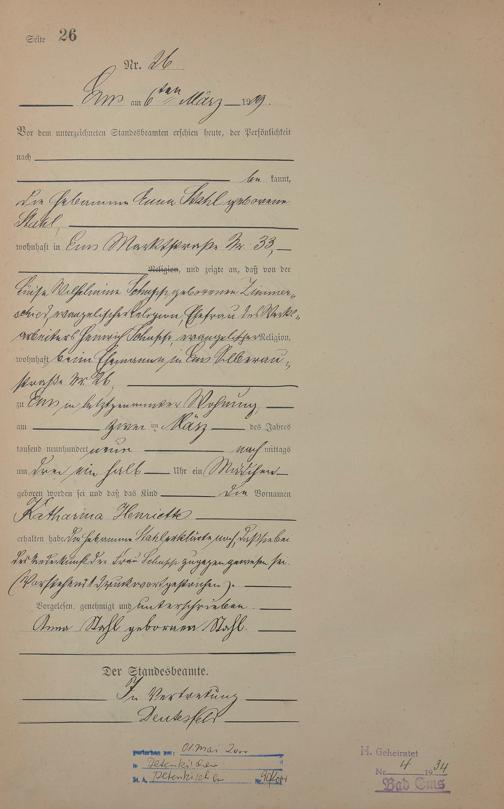 Seite 26
Nr. 26
Ems am 6ten März 1909.
Vor dem unterzeichneten Standesbeamten erschien heute, der Persönlichkeit
nach
be kannt,
die Hebamme Anna Stahl geborene
Stahl,
wohnhaft in Ems Marktstraße Nr. 33,
Religion, und zeigte an, daß von der
Luise Wilhelmine geborenen
evangelischer Religion, Ehefrau des
arbeiters Heinrich evangelischer Religion,
wohnhaft beim Ehemann, in Ems Silberau-
straße Nr. 26,
zu Ems in letztgenannter Wohnung,
am zwei ten März des Jahres
tausend neunhundert neun nach mittags
um drei ein halb Uhr ein Mädchen
geboren worden sei und daß das Kind die Vornamen
Katharina Henriette
erhalten habe. Die Hebamme Stahl erklärte noch, daß sie bei
der Niederkunft der Frau zugegen gewesen sei.
(Vorstehend 1 Druckwort gestrichen).
Vorgelesen, genehmigt und unterschrieben.
Anna Stahl geborenen Stahl.
Der Standesbeamte.
In Vertretung
verstorben am: 01. Mai
in
St. A. Nr.
H. Geheiratet
Nr. 4 1934
Bad Ems